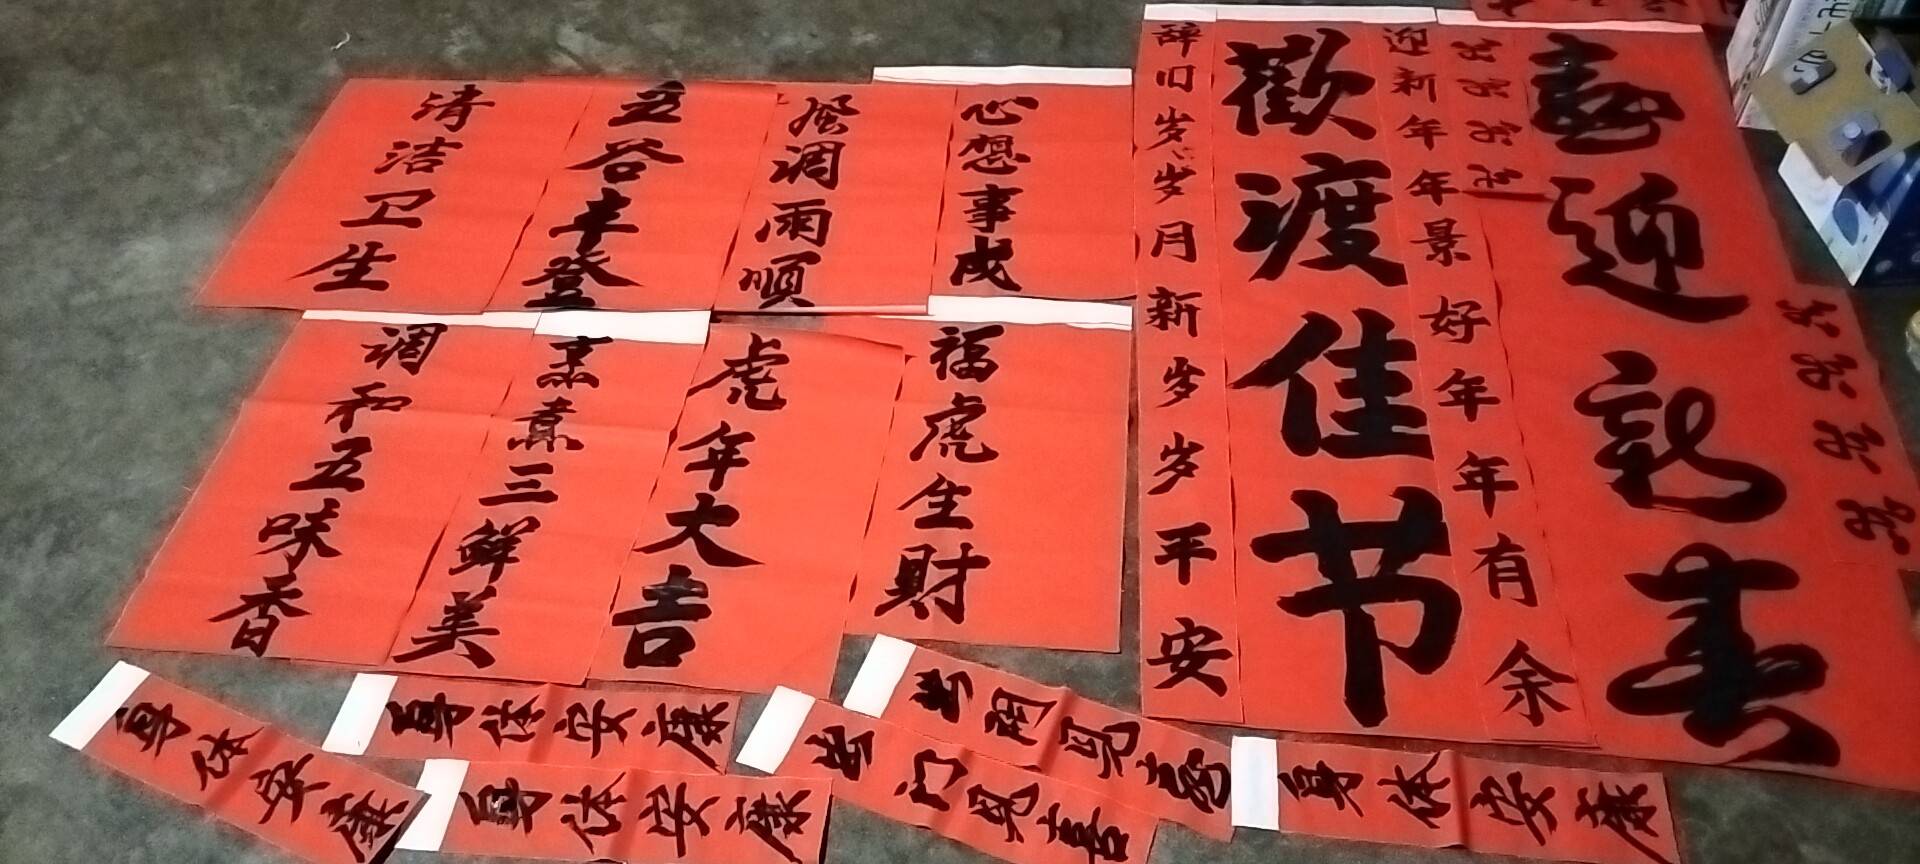 喜迎新春
迎新年年景好年年有余
歡渡佳节
辞旧岁岁月新岁岁平安
心想事成
風调雨順
五谷丰登
清洁卫生
福虎生財
虎年大吉
烹煮三鲜美
调和五味香
身体安康
身体安康
身体安康
出门见喜
出门见喜
身体安康